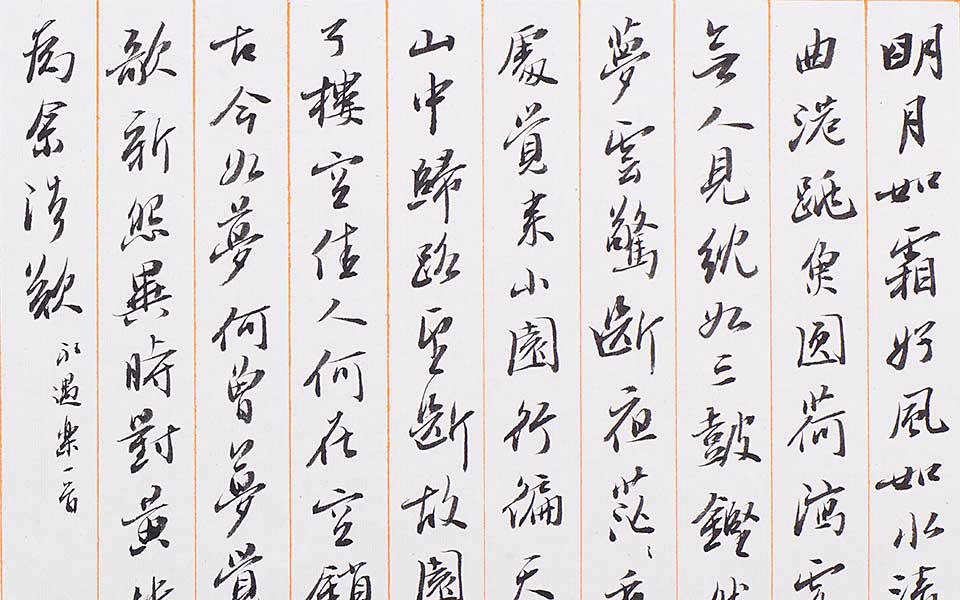 明月如霜好風如水清
曲港跳魚圓荷瀉露
無人見紞如三鼓鏗然
夢雲驚斷夜茫〻
處覺來小園行徧天
山中歸路望斷故園
子樓空佳人何在空鎖
古今如夢何曾夢覺
歌新怨異時對黃
為余浩歎
永遇樂一首